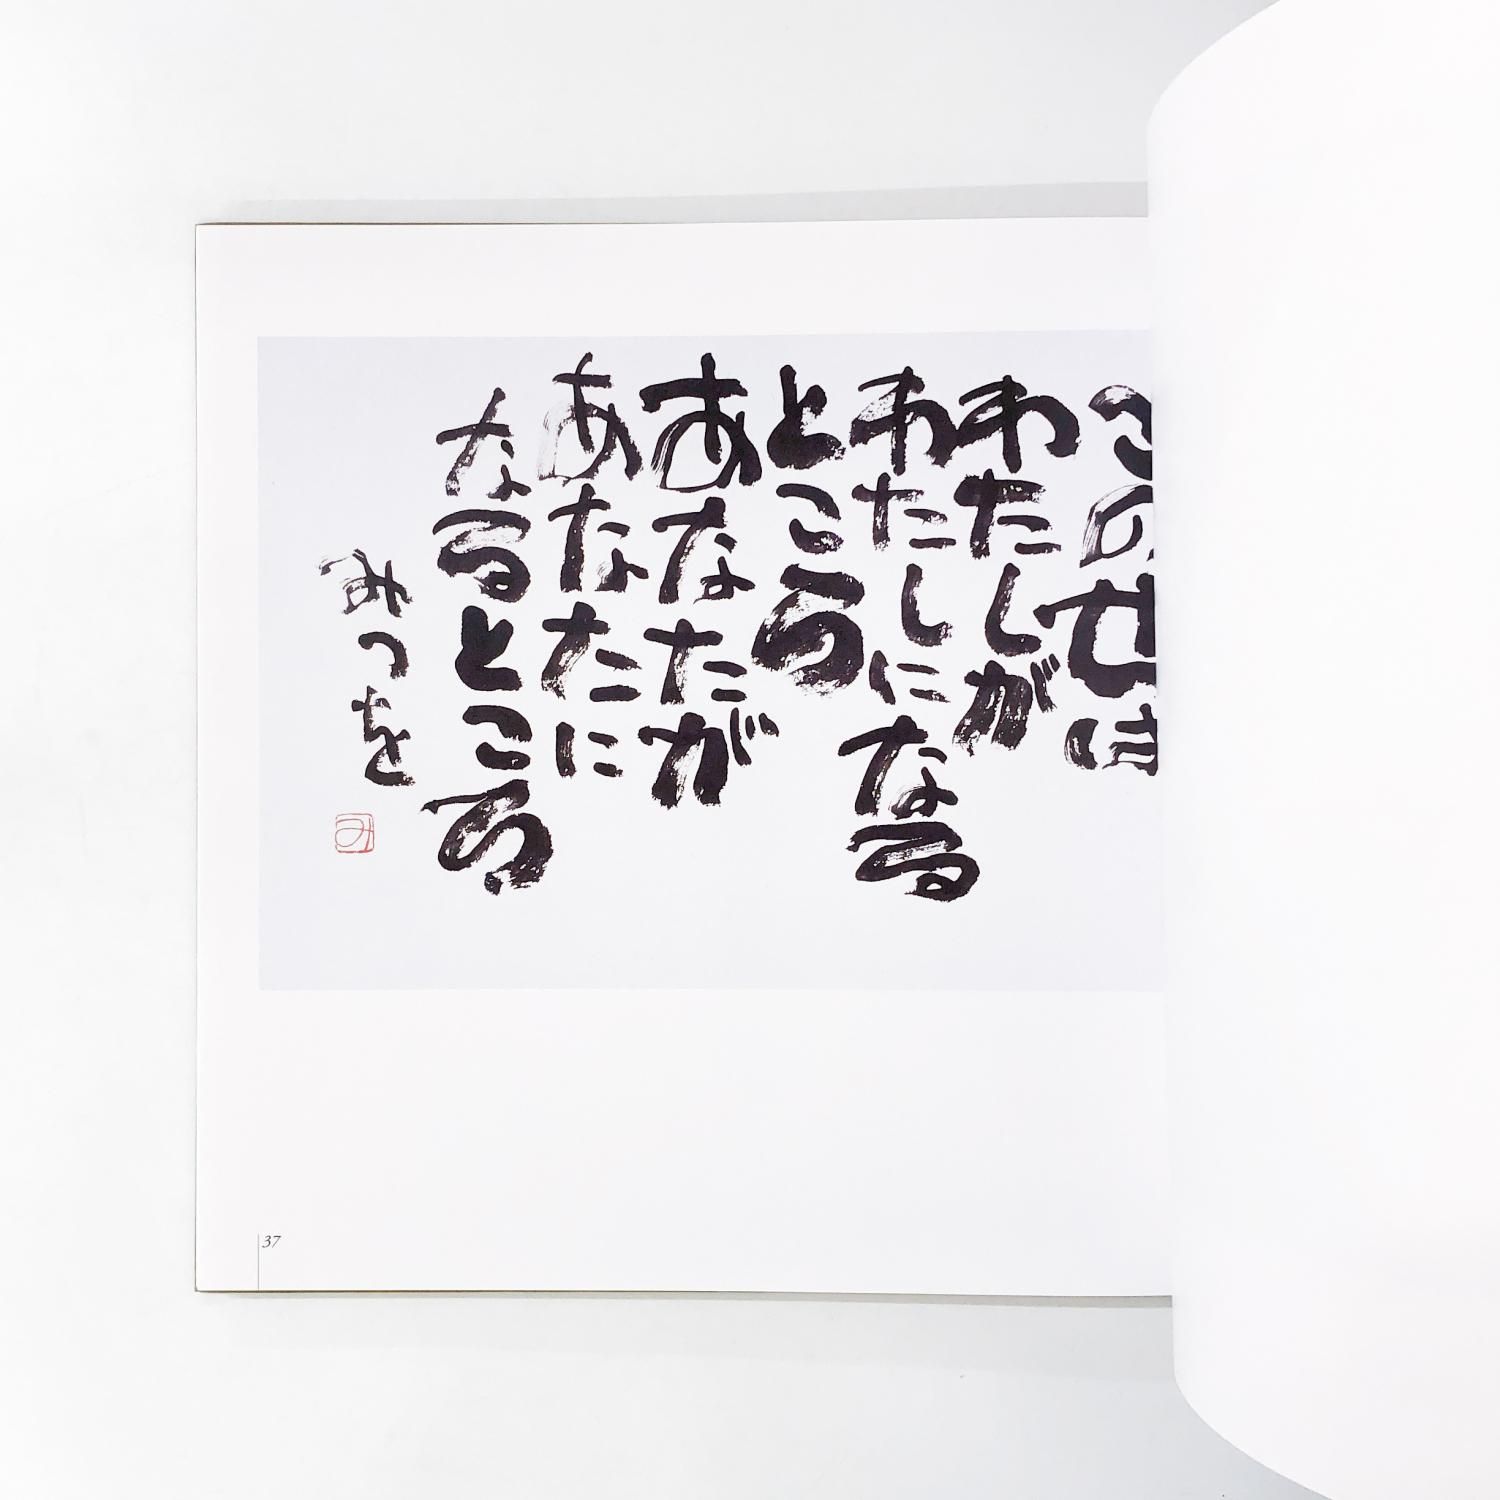 このせは
わたしが
わたしになる
ところ
あなたが
あなたに
なるところ
みつを
み
37